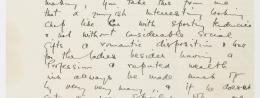 you take from me
that a youngish interesting looking,
chap like him with sporting tendencies
& not without considerable social
gifts a romantic disposition &
for the ladies besides having
profession & reputed wealth
is always be made much of
by very very many & if he doesn't